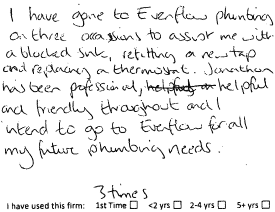 I have gone to Everflow plumbing
on three occasions to assist me with
a blocked sink, refitting a new tap
and replacing a thermostat. Jonathan
has been professional, helpful and helpful
and friendly throughout and I
intend to go to Everflow for all
my future plumbing needs.
3 times
I have used this firm: 1st Time ☐ <2 yrs ☐ 2-4 yrs ☐ 5+ yrs ☐